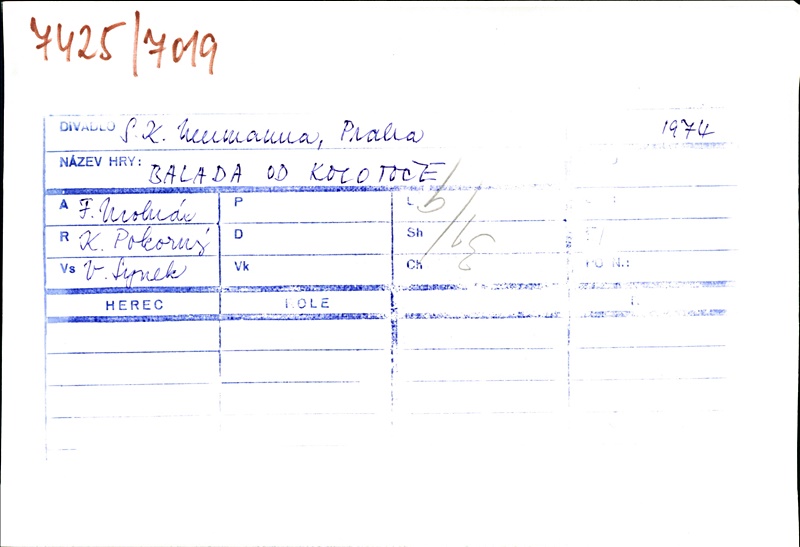 7425/7019
DIVADLO S. K. Neumanna, Praha 1974
NÁZEV HRY: BALADA OD KOLOTOČE
A F. Molnár P L
R K. Pokorný D Sh
Vs V. Synek Vk Ch PO N.:
HEREC ROLE